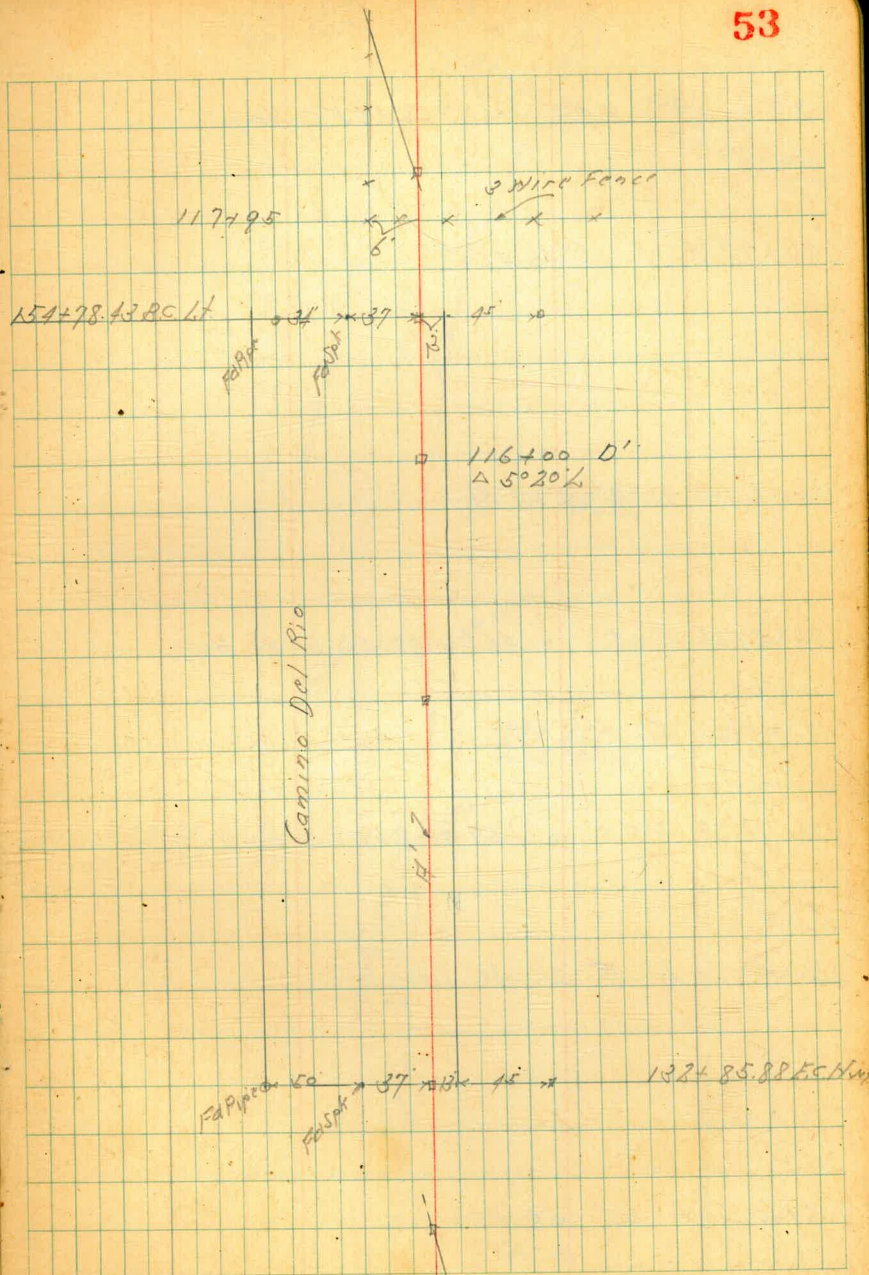 53
3 Wire Fence
117+95
6'
154+78.43 BC Lt
34 37 45
13
Fd Pipe Fd Spk
116+00 D'
Δ 5°20' L
Camino Del Rio
50 37 13 45 132+85.88 EC
Fd Pipe Fd Spk